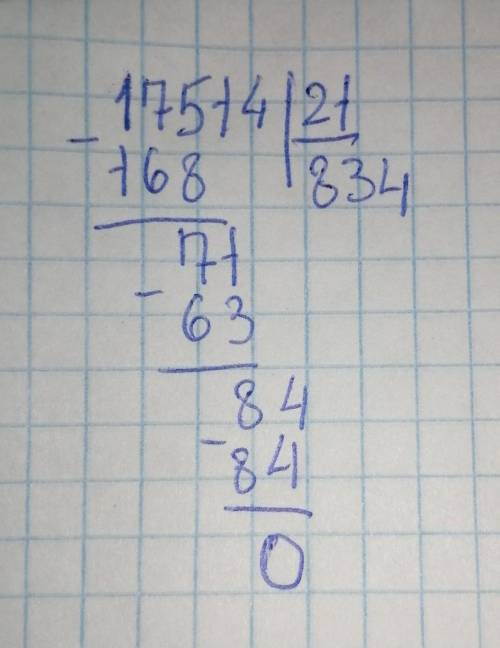 17514 | 21
- 168 | 834
71
- 63
84
- 84
0